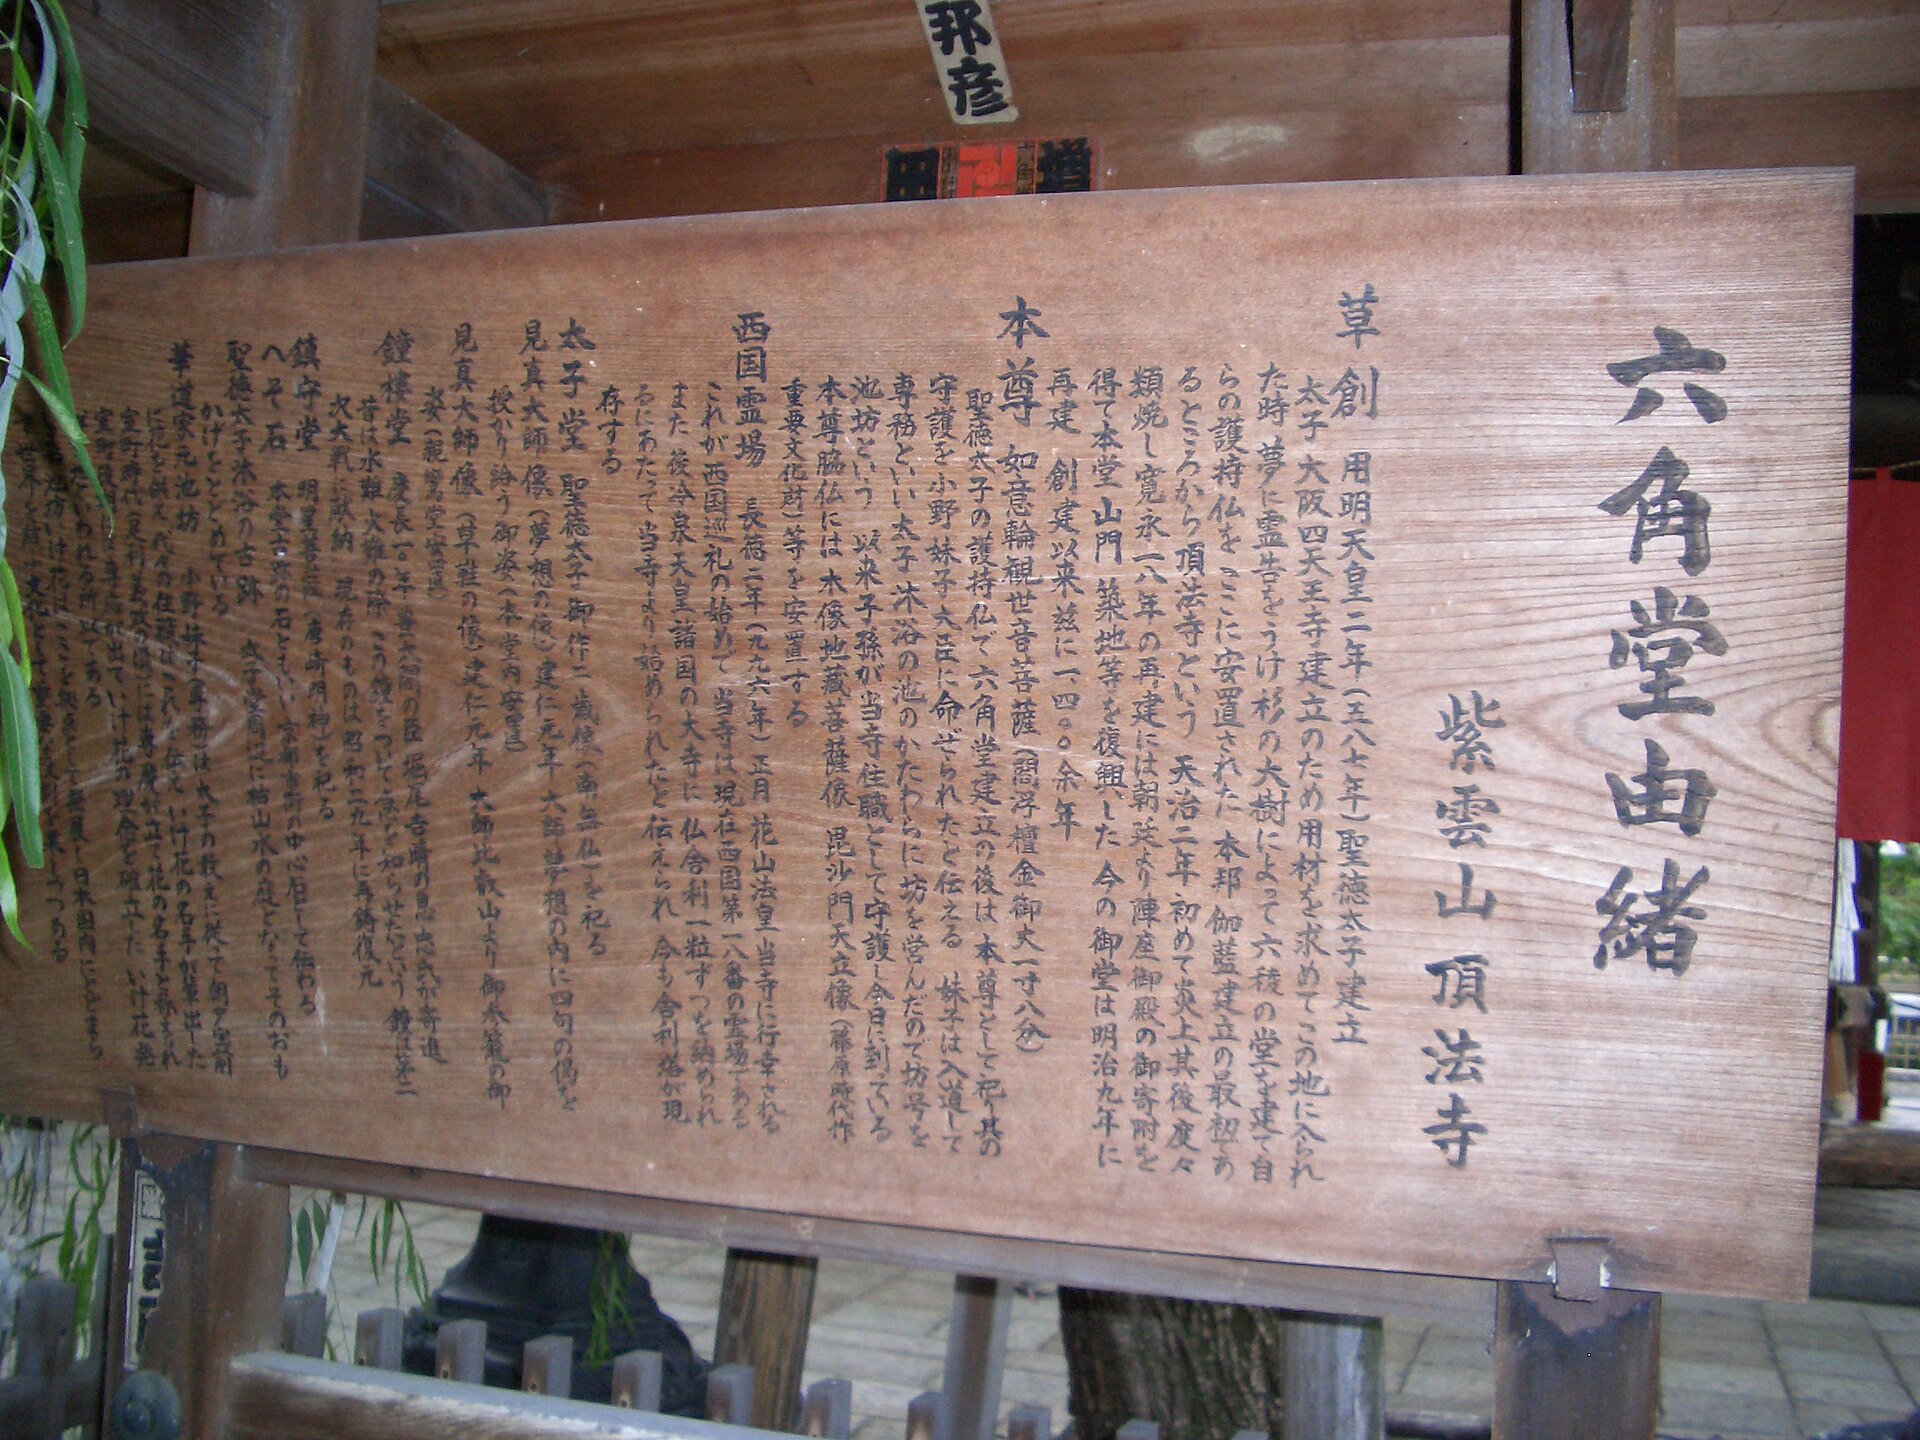 六角堂由緒
紫雲山頂法寺
草創 用明天皇二年(五八七年)聖徳太子建立
太子大阪四天王寺建立のため用材を求めてこの地に入られ
た時 夢に霊告をうけ杉の大樹によって六稜の堂を建て自
らの護持仏をここに安置された 本邦伽藍建立の最初であ
るところから頂法寺という 天治二年初めて炎上其後度々
類焼し寛永一八年の再建には朝廷より陣座御殿の御寄附を
得て本堂山門 築地等を復興した 今の御堂は明治九年に
再建 創建以来茲に一四〇〇余年
本尊 如意輪観世音菩薩(閻浮檀金御丈一寸八分)
聖徳太子の護持仏で六角堂建立の後は本尊として祀り其の
守護を小野妹子大臣に命ぜられたと伝える 妹子は入道して
専務といい太子沐浴の池のかたわらに坊を営んだので坊号を
池坊という 以来子孫が当寺住職として守護し今日に到っている
本尊脇仏には木像地蔵菩薩像 毘沙門天立像(藤原時代作
重要文化財)等を安置する
西国霊場 長徳二年(九九六年)正月 花山法皇当寺に行幸される
これが西国巡礼の始めで 当寺は現在西国第一八番の霊場である
また後冷泉天皇諸国の大寺に仏舎利一粒ずつを納められ
るにあたって当寺より始められたと伝えられ 今も舎利塔が現
存する
太子堂 聖徳太子御作二歳像(南無仏)を祀る
見真大師像(夢想の像)建仁元年 大師夢想の内に四句の偈を
授かり給う御姿(本堂内安置)
見真大師像(草鞋の像)建仁元年 大師比叡山より御参籠の御
姿(親鸞堂安置)
鐘楼堂 慶長一〇年 豊太閤の臣 堀尾吉晴の息忠氏が寄進
昔は水難 火難の際 この鐘をついて急を知らせたという 鐘は第二
次大戦に献納 現存のものは昭和二九年に再鋳復元
鎮守堂 明星菩薩(唐崎明神)を祀る
へそ石 本堂古跡の石ともいい 京都市町の中心石として伝わる
聖徳太子沐浴の古跡 太子堂周辺に枯山水の庭となってそのおも
かげをとどめている
華道家元池坊 小野妹子(専務)は太子の教えに従って朝夕宝前
に花を供え 代々の住職はこれを伝え いけ花の名手が輩出した
室町時代(足利義政の頃)には専慶が立て花の名手と称され
室町末期には専応が出ていけ花の理念を確立した いけ花発
祥の地といわれる所以である